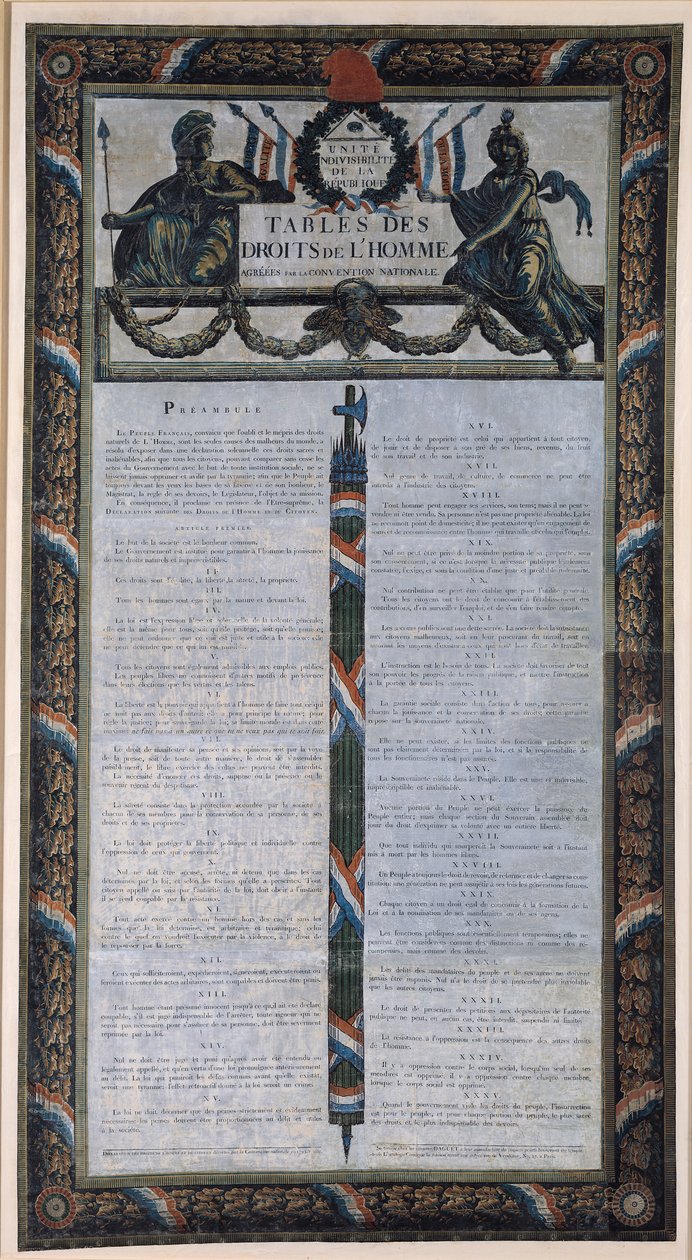 ÉGALITÉ
UNITÉ
INDIVISIBILITÉ
DE LA
RÉPUBLIQUE
TABLES DES
DROITS DE L'HOMME
AGRÉÉES PAR LA CONVENTION NATIONALE.
PRÉAMBULE
LE PEUPLE FRANÇAIS, convaincu que l'oubli et le mépris des droits
naturels de L'HOMME, sont les seules causes des malheurs du monde, a
résolu d'exposer dans une déclaration solemnelle ces droits sacrés et
inaliénables, afin que tous les citoyens, pouvant comparer sans cesse les
actes du Gouvernement avec le but de toute institution sociale, ne se
laissent jamais opprimer et avilir par la tyrannie; afin que le Peuple ait
toujours devant les yeux les bases de sa liberté et de son bonheur, le
Magistrat, la règle de ses devoirs, le Législateur, l'objet de sa mission.
En conséquence, il proclame en présence de l'Etre-suprême, la
DÉCLARATION suivante DES DROITS DE L'HOMME ET DU CITOYEN.
ARTICLE PREMIER.
Le but de la société est le bonheur commun.
Le Gouvernement est institué pour garantir à l'homme la jouissance
de ses droits naturels et imprescriptibles.
II.
Ces droits sont l'égalité, la liberté, la sûreté, la propriété.
III.
Tous les hommes sont égaux par la nature et devant la loi.
IV.
La loi est l'expression libre et solemnelle de la volonté générale;
elle est la même pour tous, soit qu'elle protège, soit qu'elle punisse;
elle ne peut ordonner que ce qui est juste et utile à la société; elle
ne peut défendre que ce qui lui est nuisible.
V.
Tous les citoyens sont également admissibles aux emplois publics.
Les peuples libres ne connoissent d'autres motifs de préférence
dans leurs élections que les vertus et les talens.
VI.
La liberté est le pouvoir qui appartient à l'homme de faire tout ce qui
ne nuit pas aux droits d'autrui: elle a pour principe la nature; pour
règle la justice; pour sauve-garde la loi; sa limite morale est dans cette
maxime: ne fais pas à un autre ce que tu ne veux pas qui te soit fait.
VII.
Le droit de manifester sa pensée et ses opinions, soit par la voye
de la presse, soit de toute autre manière, le droit de s'assembler
paisiblement, le libre exercice des cultes ne peuvent être interdits.
La nécessité d'énoncer ces droits, suppose ou la présence ou le
souvenir récent du despotisme.
VIII.
La sûreté consiste dans la protection accordée par la société à
chacun de ses membres pour la conservation de sa personne, de ses
droits et de ses propriétés.
IX.
La loi doit protéger la liberté publique et individuelle contre
l'oppression de ceux qui gouvernent.
X.
Nul ne doit être accusé, arrêté, ni détenu que dans les cas
déterminés par la loi, et selon les formes qu'elle a prescrites. Tout
citoyen appellé ou saisi par l'autorité de la loi, doit obéir à l'instant:
il se rend coupable par la résistance.
XI.
Tout acte exercé contre un homme hors des cas et sans les
formes que la loi détermine, est arbitraire et tyrannique; celui
contre lequel on voudroit l'exécuter par la violence, a le droit de
le repousser par la force.
XII.
Ceux qui solliciteroient, expédieroient, signeroient, exécuteroient ou
feroient exécuter des actes arbitraires, sont coupables et doivent être punis.
XIII.
Tout homme étant présumé innocent jusqu'à ce qu'il ait été déclaré
coupable, s'il est jugé indispensable de l'arrêter, toute rigueur qui ne
seroit pas nécessaire pour s'assurer de sa personne, doit être sévèrement
réprimée par la loi.
XIV.
Nul ne doit être jugé et puni qu'après avoir été entendu ou
légalement appellé, et qu'en vertu d'une loi promulguée antérieurement
au délit. La loi qui puniroit les délits commis avant qu'elle existât,
seroit une tyrannie: l'effet rétroactif donné à la loi seroit un crime.
XV.
La loi ne doit décerner que des peines strictement et évidemment
nécessaires: les peines doivent être proportionnées au délit et utiles
à la société.
XVI.
Le droit de propriété est celui qui appartient à tout citoyen,
de jouir et de disposer à son gré de ses biens, revenus, du fruit
de son travail et de son industrie.
XVII.
Nul genre de travail, de culture, de commerce ne peut être
interdit à l'industrie des citoyens.
XVIII.
Tout homme peut engager ses services, son tems; mais il ne peut se
vendre ni être vendu. Sa personne n'est pas une propriété aliénable. La loi
ne reconnoit point de domesticité; il ne peut exister qu'un engagement de
soins et de reconnoissance entre l'homme qui travaille et celui qui l'emploi.
XIX.
Nul ne peut être privé de la moindre portion de sa propriété, sans
son consentement, si ce n'est lorsque la nécessité publique légalement
constatée, l'exige, et sous la condition d'une juste et préalable indemnité.
XX.
Nul contribution ne peut être établie que pour l'utilité générale.
Tous les citoyens ont le droit de concourir à l'établissement des
contributions, d'en surveiller l'emploi, et de s'en faire rendre compte.
XXI.
Les secours publics sont une dette sacrée. La société doit la subsistance
aux citoyens malheureux, soit en leur procurant du travail, soit en
assurant les moyens d'exister à ceux qui sont hors d'état de travailler.
XXII.
L'instruction est le besoin de tous. La société doit favoriser de tout
son pouvoir les progrès de la raison publique, et mettre l'instruction
à la portée de tous les citoyens.
XXIII.
La garantie sociale consiste dans l'action de tous, pour assurer à
chacun la jouissance et la conservation de ses droits; cette garantie
repose sur la souveraineté nationale.
XXIV.
Elle ne peut exister, si les limites des fonctions publiques ne
sont pas clairement déterminées par la loi, et si la responsabilité de
tous les fonctionnaires n'est pas assurée.
XXV.
La Souveraineté réside dans le Peuple. Elle est une et indivisible,
imprescriptible et inaliénable.
XXVI.
Aucune portion du Peuple ne peut exercer la puissance du
Peuple entier; mais chaque section du Souverain assemblée doit
jouir du droit d'exprimer sa volonté avec un entière liberté.
XXVII.
Que tout individu qui usurperoit la Souveraineté soit à l'instant
mis à mort par les hommes libres.
XXVIII.
Un Peuple a toujours le droit de revoir, de réformer et de changer sa cons-
titution: une génération ne peut assujétir à ses lois les générations futures.
XXIX.
Chaque citoyen a un droit égal de concourir à la formation de la
Loi et à la nomination de ses mandataires ou de ses agens.
XXX.
Les fonctions publiques sont essentiellement temporaires; elles ne
peuvent être considérées comme des distinctions ni comme des ré-
compenses, mais comme des devoirs.
XXXI.
Les délits des mandataires du peuple et de ses agens ne doivent
jamais être impunis. Nul n'a le droit de se prétendre plus inviolable
que les autres citoyens.
XXXII.
Le droit de présenter des pétitions aux dépositaires de l'autorité
publique ne peut, en aucun cas, être interdit, suspendu ni limité.
XXXIII.
La résistance à l'oppression est la conséquence des autres droits
de l'homme.
XXXIV.
Il y a oppression contre le corps social, lorsqu'un seul de ses
membres est opprimé: il y a oppression contre chaque membre,
lorsque le corps social est opprimé.
XXXV.
Quand le gouvernement viole les droits du peuple, l'insurrection
est pour le peuple, et pour chaque portion du peuple, le plus sacré
des droits et le plus indispensable des devoirs.
DAGUET